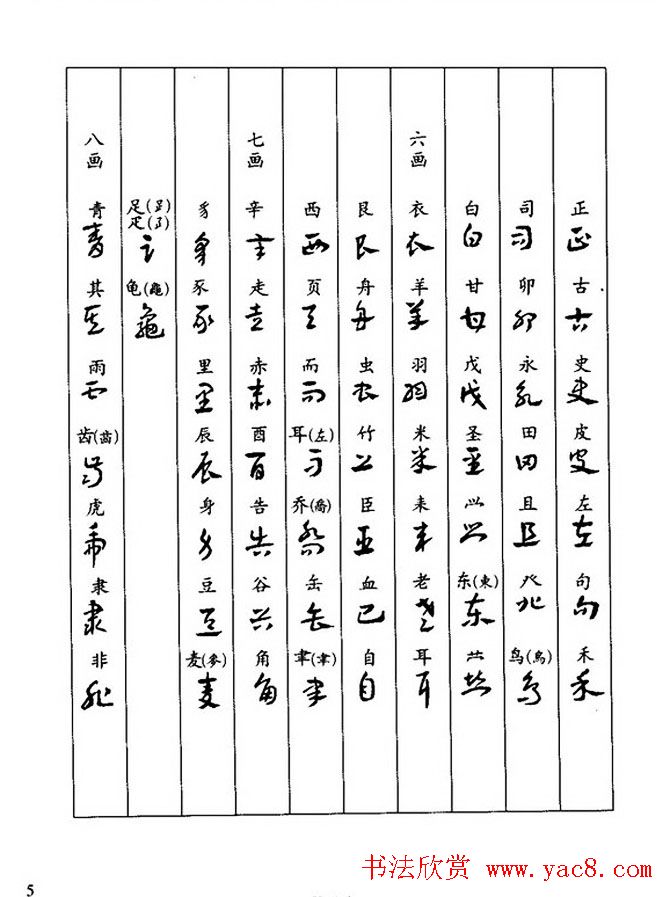 正 古 史 皮 左 句 禾
司 卯 永 田 且 癶 鸟(鳥)
白 甘 戊 圣 东(東)
六画 衣 羊 羽 米 耒 老 耳
艮 舟 虫 竹 臣 血 自
西 页 而 耳(左) 乔(喬) 缶
七画 辛 走 赤 酉 告 谷 角
豸 豕 里 辰 身 豆 麦(麥)
足(𧾷) 疋(⺪) 龟(龜)
八画 青 其 雨 齿(齒) 虎 隶 非
5
书法欣赏 www.yac8.com